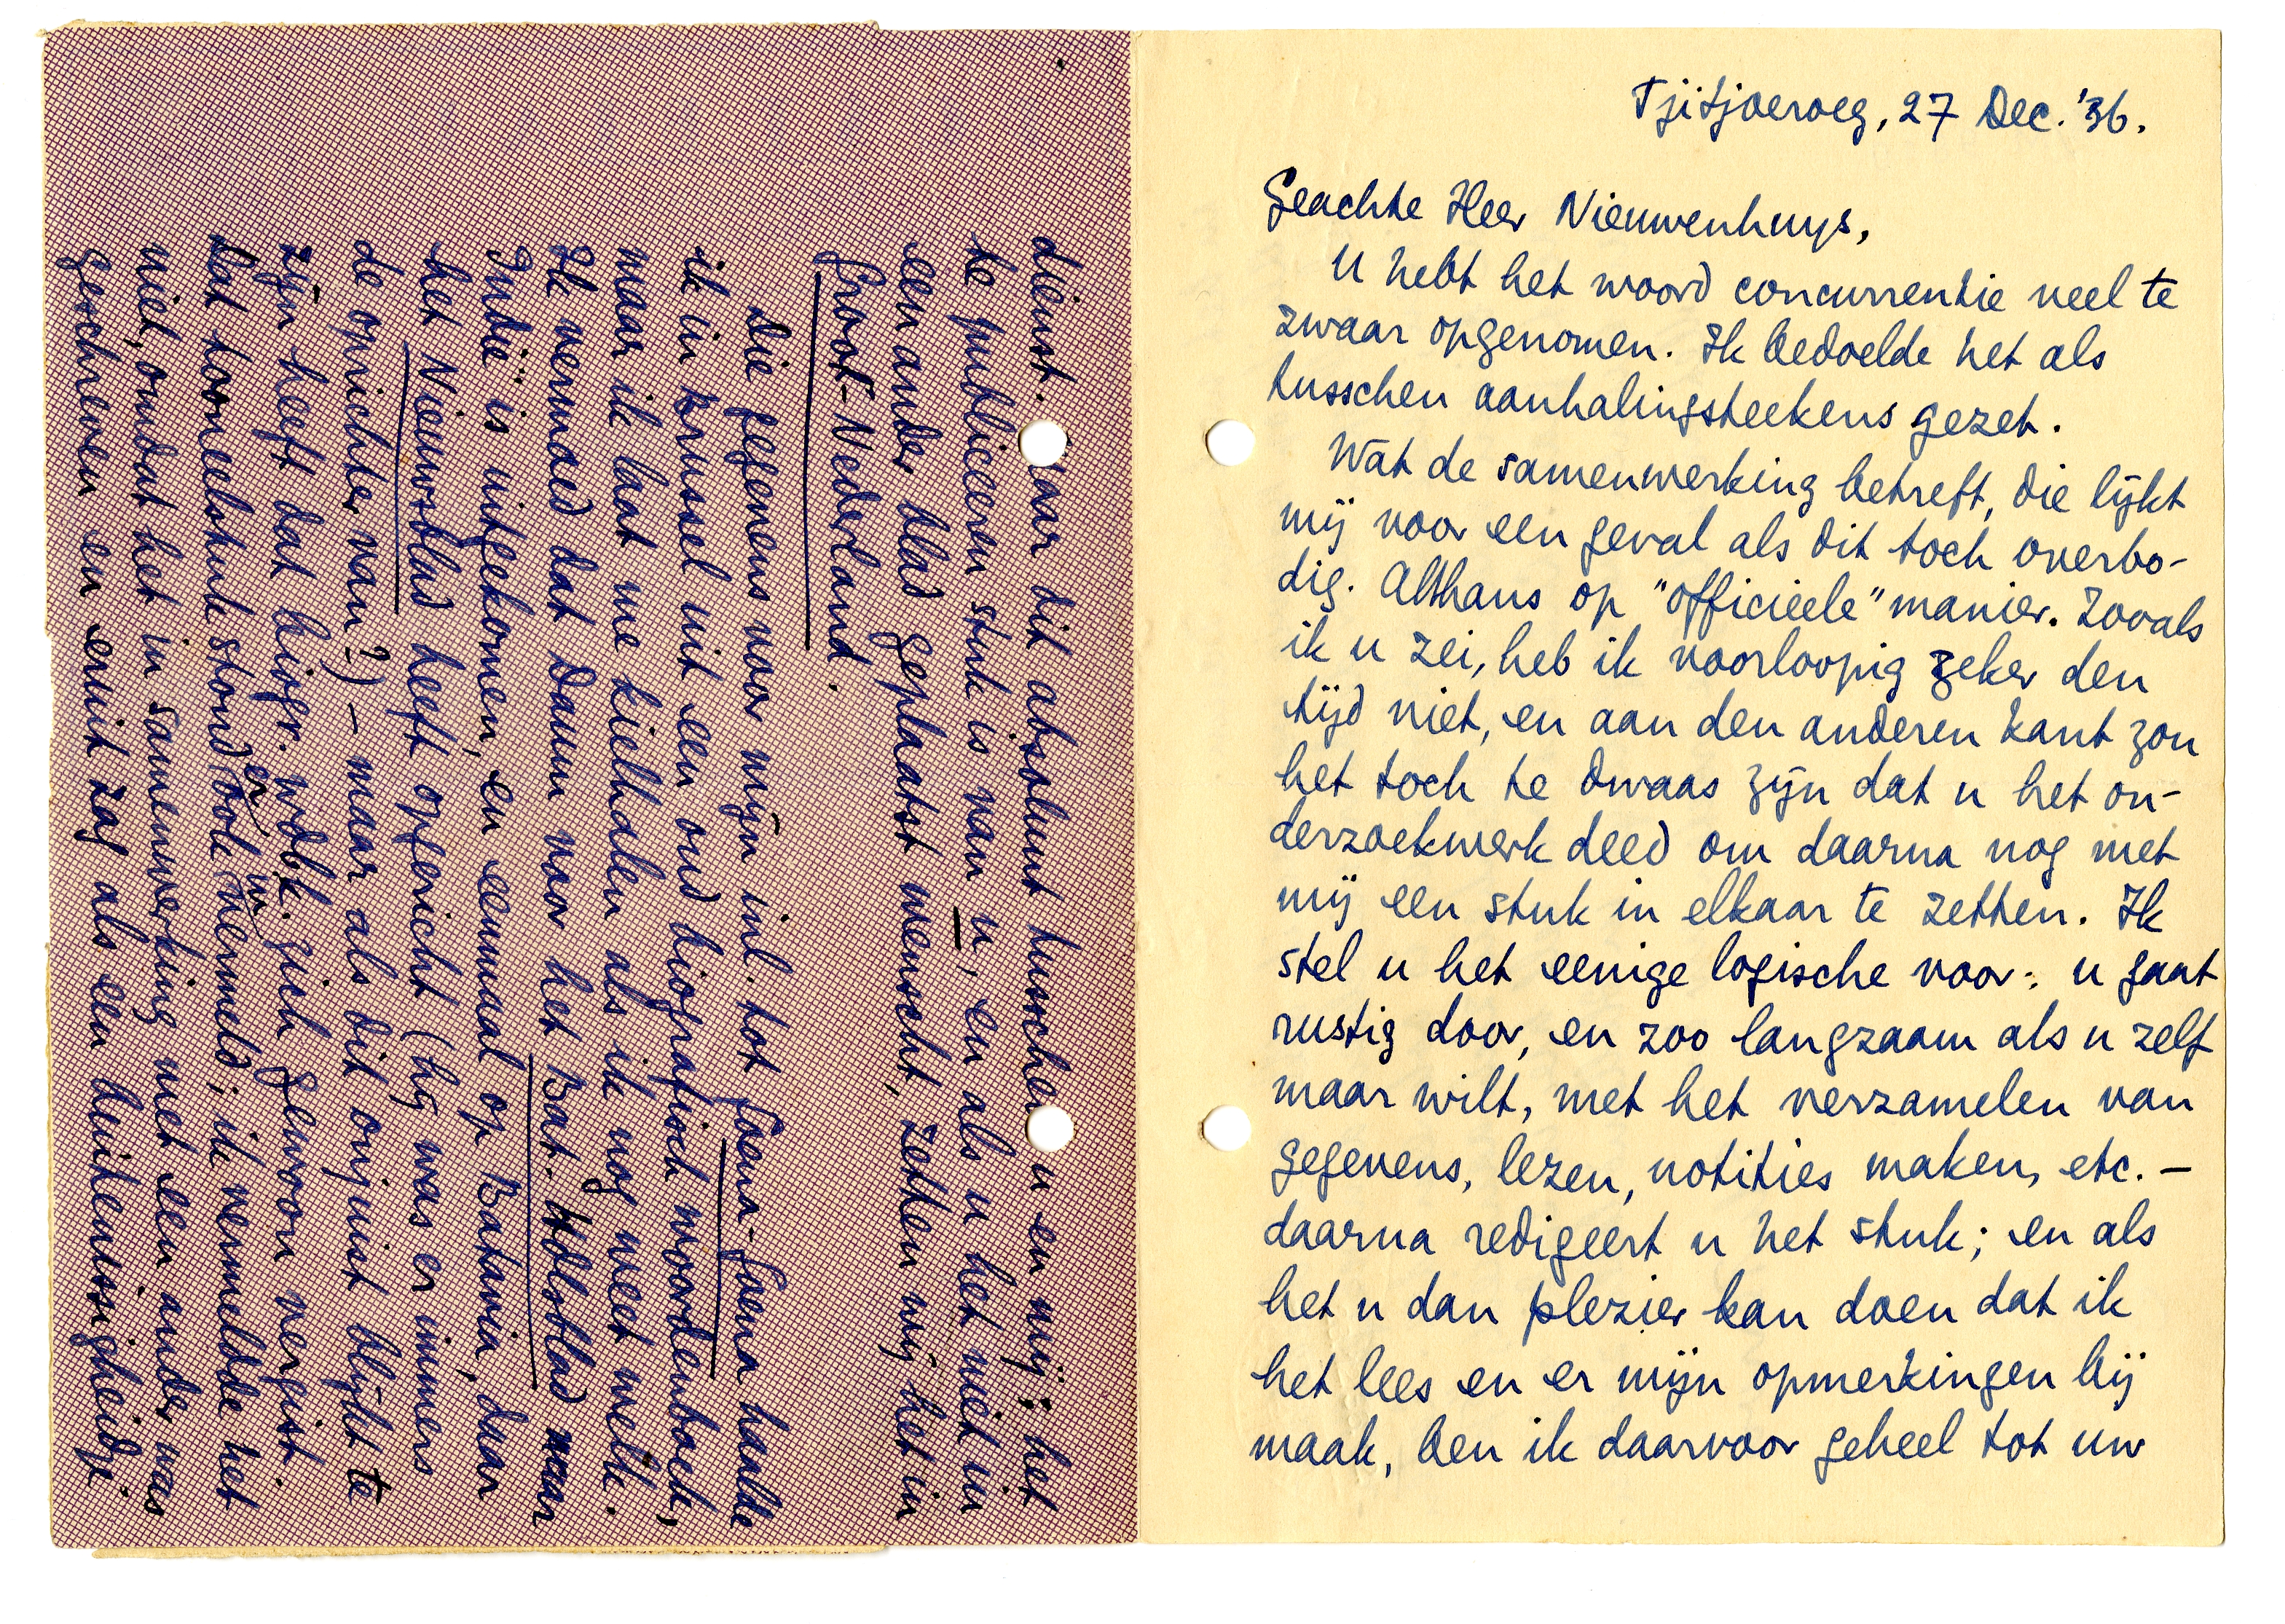 Tjitjoeroeg, 27 Dec. '36.
Geachte Heer Nieuwenhuys,
U hebt het woord concurrentie veel te
zwaar opgenomen. Ik bedoelde het als
tusschen aanhalingsteekens gezet.
Wat de samenwerking betreft, die lijkt
mij voor een geval als dit toch overbo-
dig. Althans op "officieele" manier. Zooals
ik u zei, heb ik voorloopig zeker den
tijd niet, en aan den anderen kant zou
het toch te dwaas zijn dat u het on-
derzoekwerk deed om daarna nog met
mij een stuk in elkaar te zetten. Ik
stel u het eenige logische voor: u gaat
rustig door, en zoo langzaam als u zelf
maar wilt, met het verzamelen van
gegevens, lezen, notities maken, etc. –
daarna redigeert u het stuk; en als
het u dan plezier kan doen dat ik
het lees en er mijn opmerkingen bij
maak, ben ik daarvoor geheel tot uw
dienst. Maar dit absoluut tusschen u en mij; het
te publiceeren stuk is van u, en als u het niet in
een ander blad geplaatst wenscht, zetten wij het in
Groot-Nederland.
Die gegevens voor mijn inl. tot Goena-Goena haalde
ik in Brussel uit een oud biografisch woordenboek,
maar ik laat me kielhalen als ik nog weet welk.
Ik vermoed dat Daum voor het Bat. Hdlsblad naar
Indië is uitgekomen, en eenmaal op Batavia, daar
het Nieuwsblad heeft opgericht (hij was er immers
de oprichter van?) – maar als dit onjuist blijkt te
zijn heeft dat biogr. wdbk. zich gewoon vergist.
Dat tooneelstuk stond er ook in vermeld; ik vermeldde het
niet, omdat het in samenwerking met een ander was
geschreven en eruit zag als een buitenissigheidje.